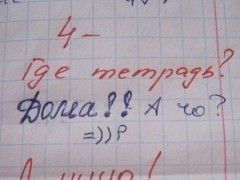 4-
Где тетрадь?
Дома!! А чо?
=))Р